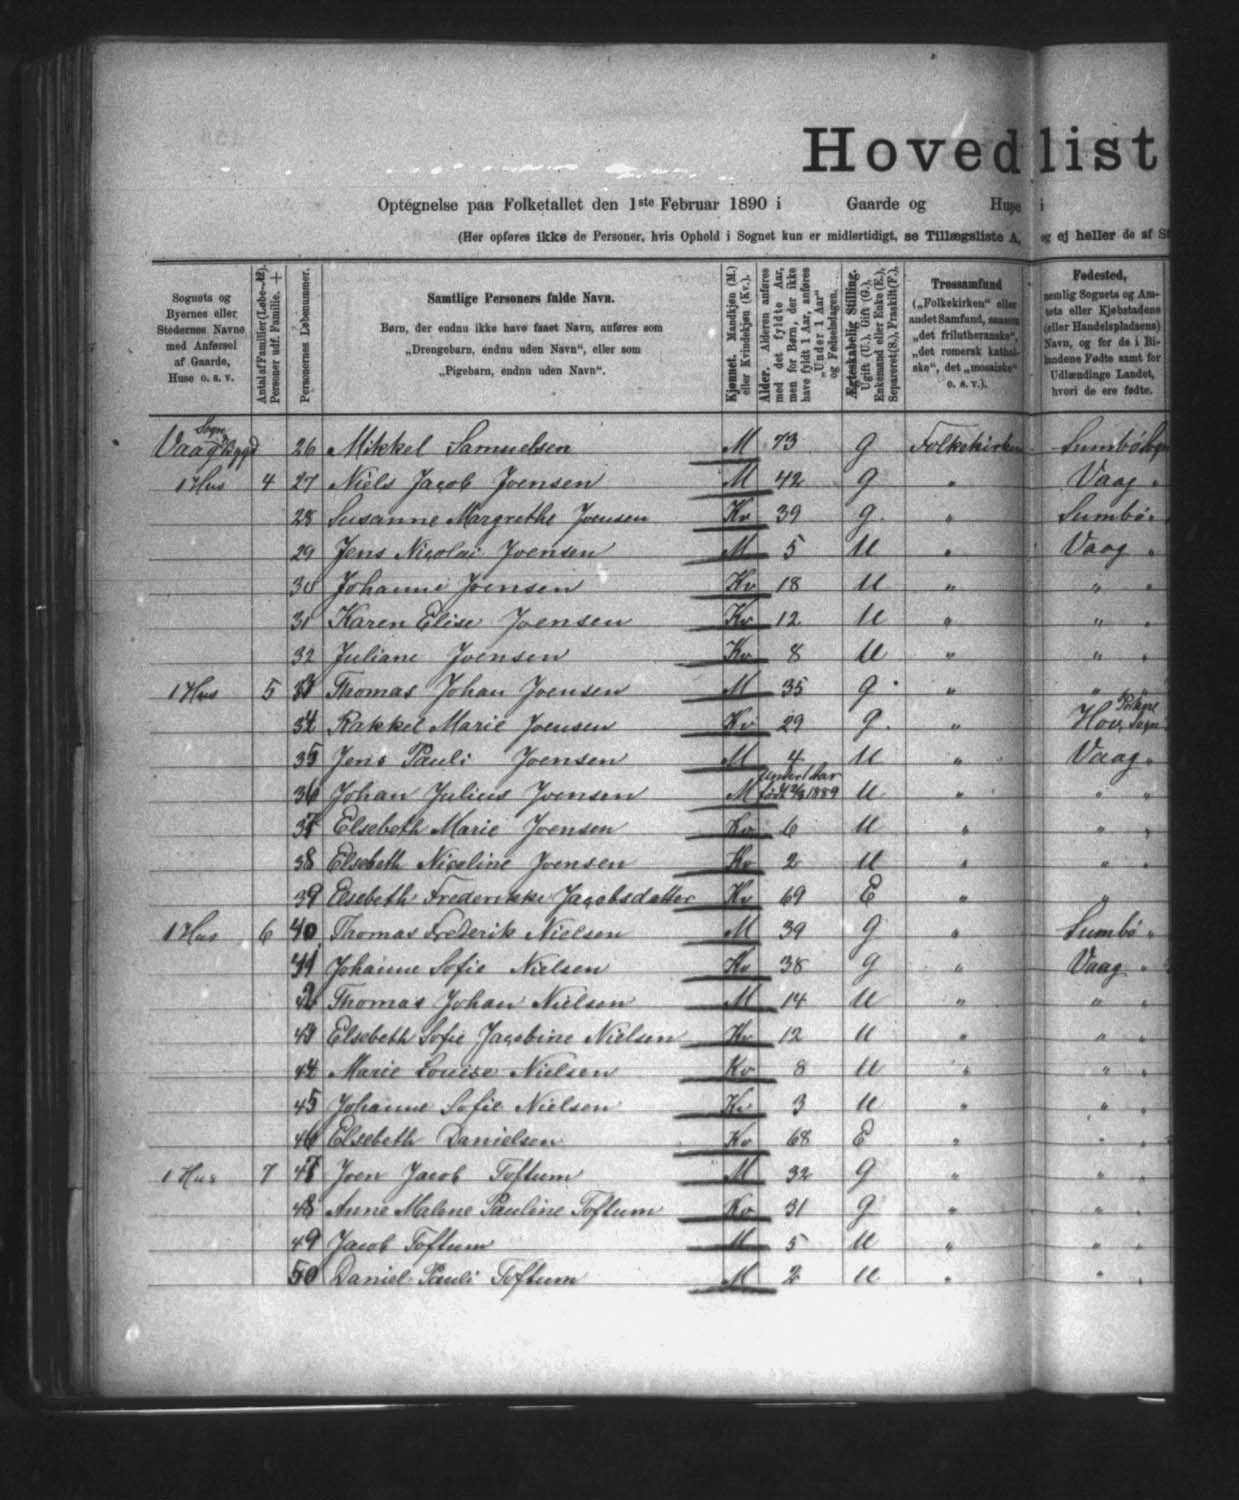 Hovedlist
Optegnelse paa Folketallet den 1ste Februar 1890 i Gaarde og Huse i
(Her opføres ikke de Personer, hvis Ophold i Sognet kun er midlertidigt, se Tillægsliste A, og ej heller de af St
Sognets og Byernes eller Stedernes Navne med Anførsel af Gaarde, Huse o. s. v.
Personernes Løbenummer.
Samtlige Personers fulde Navn.
Børn, der endnu ikke have faaet Navn, anføres som
„Drengebarn, endnu uden Navn", eller som
„Pigebarn, endnu uden Navn".
Kjønnet. Mandkjøn (M.) eller Kvindekjøn (Kv.).
Alder. Alderen anføres med det fyldte Aar, men for Børn, der ikke have fyldt 1 Aar, anføres „Under 1 Aar" og Fødselsdagen.
Ægteskabelig Stilling. Ugift (U.), Gift (G.), Enkemand eller Enke (E.), Separeret (S.), Fraskilt (F.).
Trossamfund
(„Folkekirken" eller andet Samfund, saasom „det frilutheranske", „det romersk katholske", det „mosaiske" o. s. v.).
Fødested,
nemlig Sognets og Amtets eller Kjøbstadens (eller Handelspladsens) Navn, og for de i Bilandene Fødte samt for Udlændinge Landet, hvori de ere fødte.
Sogn
Vaag Bygd 26 Mikkel Samuelsen M 73 G Folkekirken Sumbø Sogn
1 Hus 4 27 Niels Jacob Joensen M 42 G " Vaag "
28 Susanne Margrethe Joensen Kv 39 G " Sumbø "
29 Jens Nicolai Joensen M 5 U " Vaag "
30 Johanne Joensen Kv 18 U " " "
31 Karen Elise Joensen Kv 12 U " " "
32 Juliane Joensen Kv 8 U " " "
1 Hus 5 33 Thomas Johan Joensen M 35 G " "
34 Rakkel Marie Joensen Kv 29 G " Hov, Sogn
35 Jens Pauli Joensen M 4 U " Vaag "
36 Johan Julius Joensen M under 1 Aar 1889 U " " "
37 Elsebeth Marie Joensen Kv 6 U " " "
38 Elsebeth Nicoline Joensen Kv 2 U " " "
39 Elsebeth Frederikke Jacobsdatter Kv 69 E " "
1 Hus 6 40 Thomas Frederik Nielsen M 39 G " Sumbø "
41 Johanne Sofie Nielsen Kv 38 G " Vaag "
42 Thomas Johan Nielsen M 14 U " " "
43 Elsebeth Sofie Jacobine Nielsen Kv 12 U " " "
44 Marie Louise Nielsen Kv 8 U " " "
45 Johanne Sofie Nielsen Kv 3 U " " "
46 Elsebeth Danielsen Kv 68 E " " "
1 Hus 7 47 Joen Jacob Toftum M 32 G " " "
48 Anne Malene Pauline Toftum Kv 31 G " " "
49 Jacob Toftum M 5 U " " "
50 Daniel Pauli Toftum M 2 U " " "